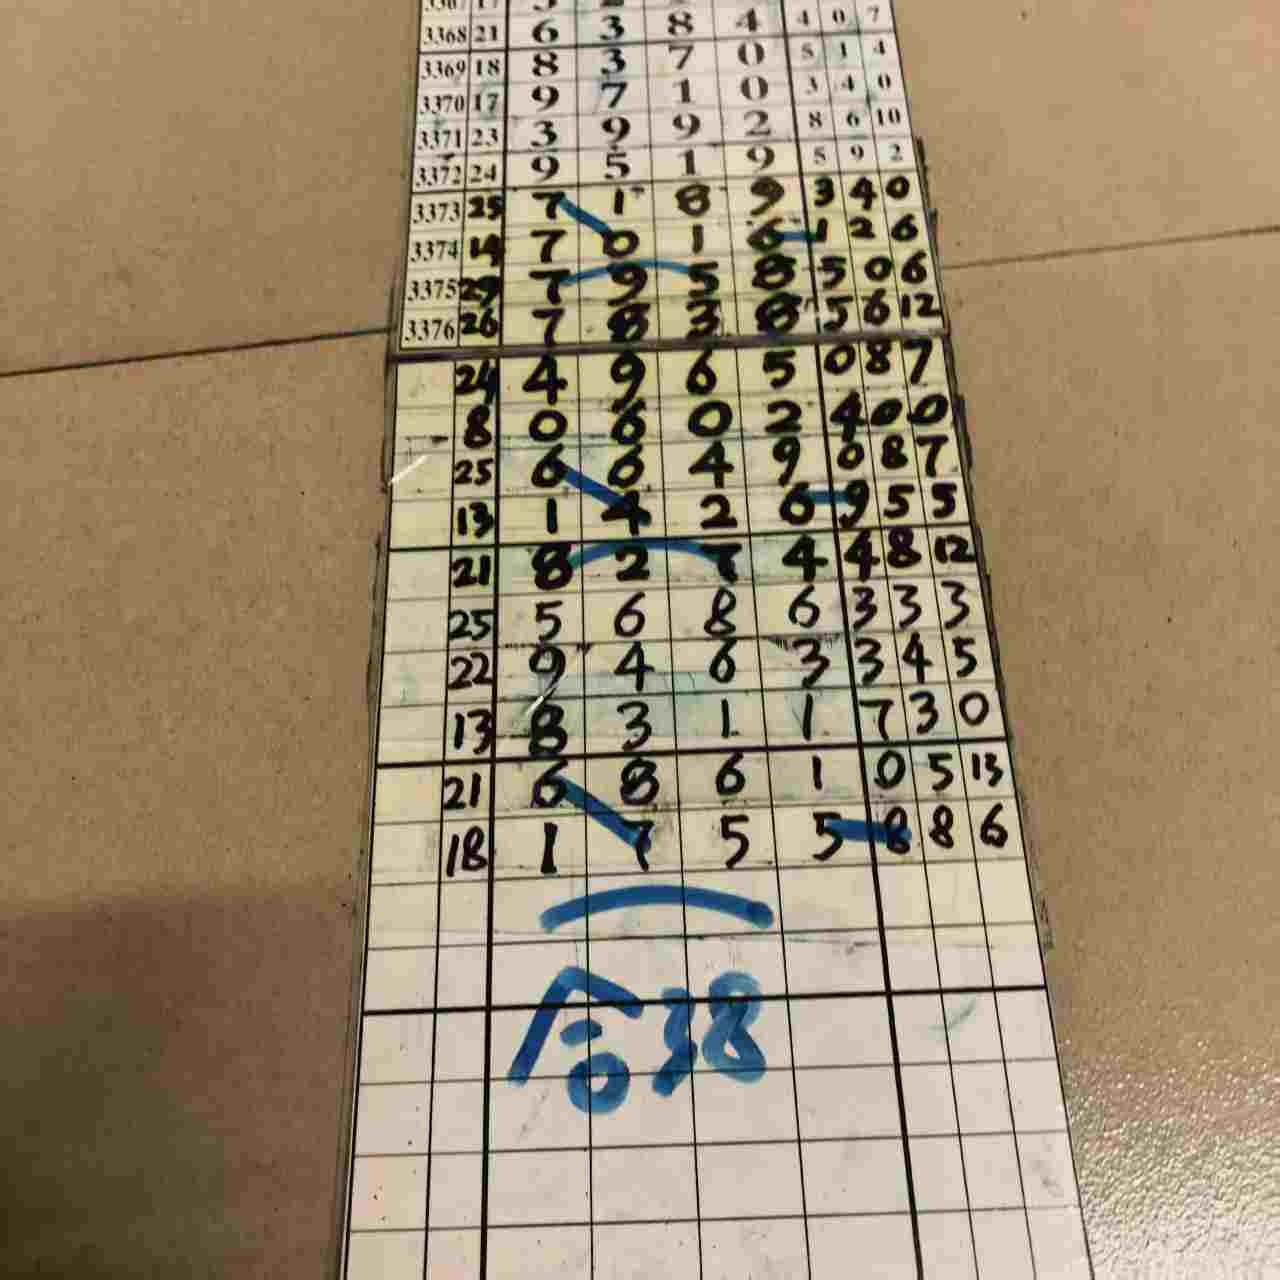 3368 21 6 3 8 4 4 0 7
3369 18 8 3 7 0 5 1 4
3370 17 9 7 1 0 3 4 0
3371 23 3 9 9 2 8 6 10
3372 24 9 5 1 9 5 9 2
3373 25 7 1 8 9 3 4 0
3374 14 7 0 1 6 1 2 6
3375 29 7 9 5 8 5 0 6
3376 26 7 8 3 8 5 6 12
24 4 9 6 5 0 8 7
8 0 6 0 2 4 0 0
25 6 6 4 9 0 8 7
13 1 4 2 6 9 5 5
21 8 2 7 4 4 8 12
25 5 6 8 6 3 3 3
22 9 4 6 3 3 4 5
13 8 3 1 1 7 3 0
21 6 8 6 1 0 5 13
18 1 7 5 5 8 8 6
合38